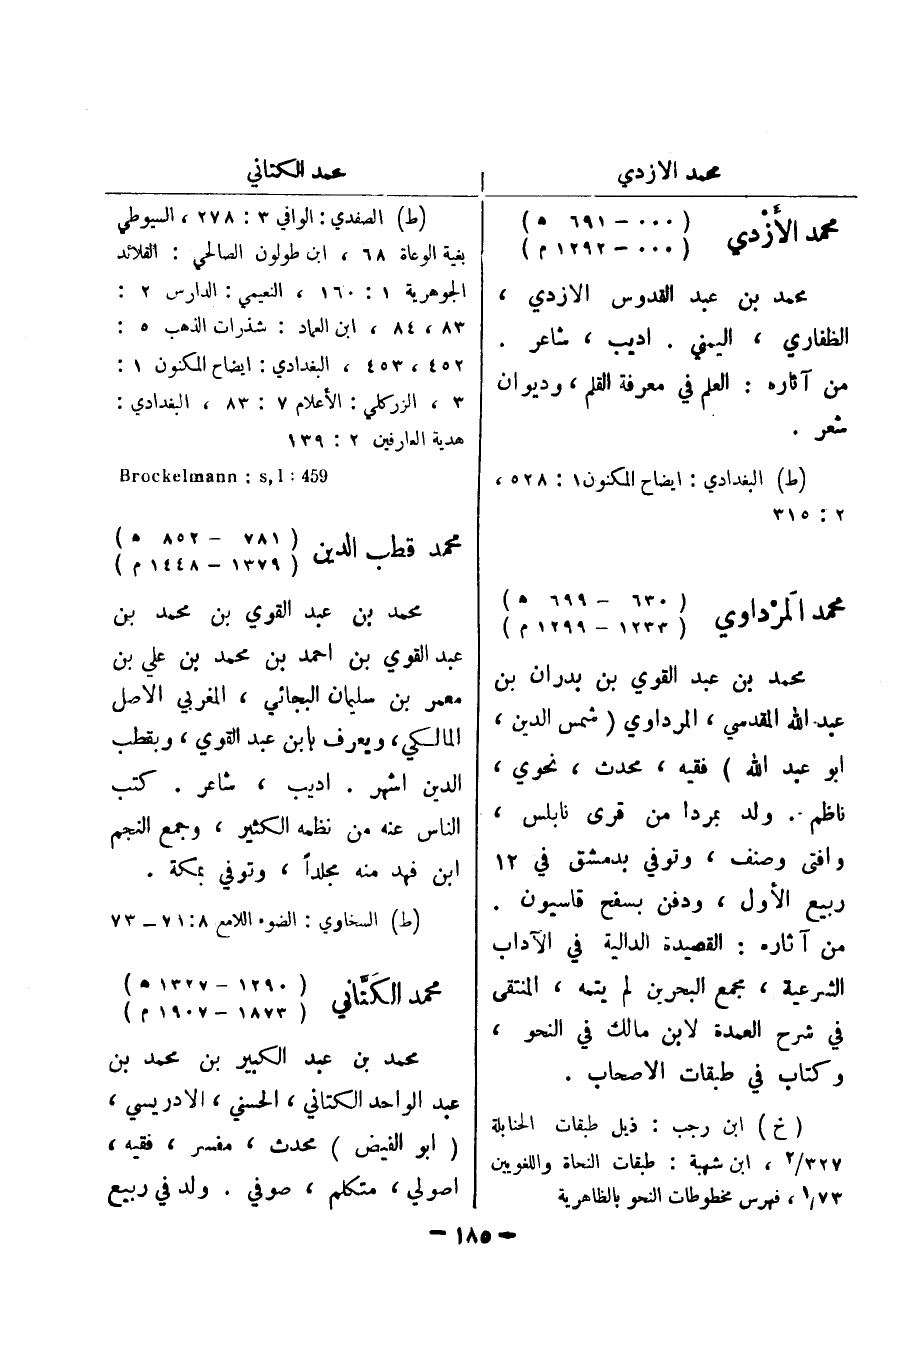 محمد الازدي
محمد الكتاني
محمد الأَزْدي
( ٠٠٠ – ٦٩١ هـ )
( ٠٠٠ – ١٢٩٢ م )
محمد بن عبد القدوس الازدي ،
الظفاري ، اليمني . اديب ، شاعر .
من آثاره : العلم في معرفة القلم ، وديوان
شعر .
(ط) البغدادي : ايضاح المكنون ١ : ٥٢٨ ،
٢ : ٣١٥
محمد المَرْداوي
( ٦٣٠ – ٦٩٩ هـ )
( ١٢٣٣ – ١٢٩٩ م )
محمد بن عبد القوي بن بدران بن
عبد الله المقدسي ، المرداوي ( شمس الدين ،
ابو عبد الله ) فقيه ، محدث ، نحوي ،
ناظم . ولد بمردا من قرى نابلس ،
وافتى وصنف ، وتوفي بدمشق في ١٢
ربيع الأول ، ودفن بسفح قاسيون .
من آثاره : القصيدة الدالية في الآداب
الشرعية ، مجمع البحرين لم يتمه ، المنتقى
في شرح العمدة لابن مالك في النحو ،
وكتاب في طبقات الاصحاب .
(خ) ابن رجب : ذيل طبقات الحنابلة
٢/٣٢٧ ، ابن شهبة : طبقات النحاة واللغويين
١/٧٣ ، فهرس مخطوطات النحو بالظاهرية
(ط) الصفدي : الوافي ٣ : ٢٧٨ ، السيوطي
بغية الوعاة ٦٨ ، ابن طولون الصالحي : القلائد
الجوهرية ١ : ١٦٠ ، النعيمي : الدارس ٢ :
٨٣ ، ٨٤ ، ابن العماد : شذرات الذهب ٥ :
٤٥٢ ، ٤٥٣ ، البغدادي : ايضاح المكنون ١ :
٣ ، الزركلي : الأعلام ٧ : ٨٣ ، البغدادي :
هدية العارفين ٢ : ١٣٩
Brockelmann : s, I : 459
محمد قطب الدين
( ٧٨١ – ٨٥٢ هـ )
( ١٣٧٩ – ١٤٤٨ م )
محمد بن عبد القوي بن محمد بن
عبد القوي بن احمد بن محمد بن علي بن
معمر بن سليمان البجائي ، المغربي الاصل
المالكي ، ويعرف بابن عبد القوي ، وبقطب
الدين اشهر . اديب ، شاعر . كتب
الناس عنه من نظمه الكثير ، وجمع النجم
ابن فهد منه مجلداً ، وتوفي بمكة .
(ط) السخاوي : الضوء اللامع ٨ : ٧١ – ٧٣
محمد الكَتَّاني
( ١٢٩٠ – ١٣٢٧ هـ )
( ١٨٧٣ – ١٩٠٧ م )
محمد بن عبد الكبير بن محمد بن
عبد الواحد الكتاني ، الحسني ، الادريسي ،
( ابو الفيض ) محدث ، مفسر ، فقيه ،
اصولي ، متكلم ، صوفي . ولد في ربيع
– ١٨٥ –